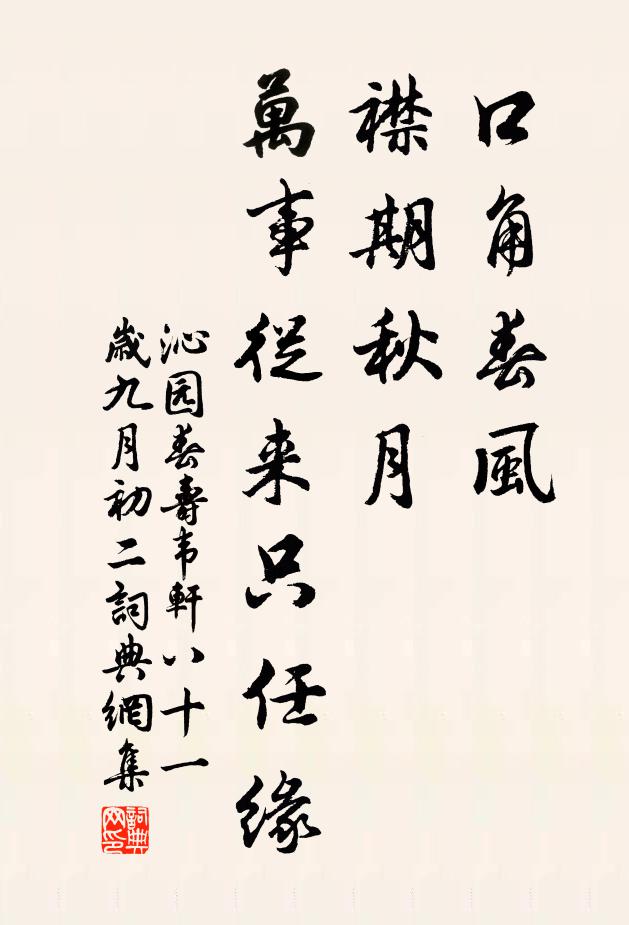 口角春風
襟期秋月
萬事從来只任緣
沁园春壽韦軒八十一
歲九月初二詞典網集
詞典
网印